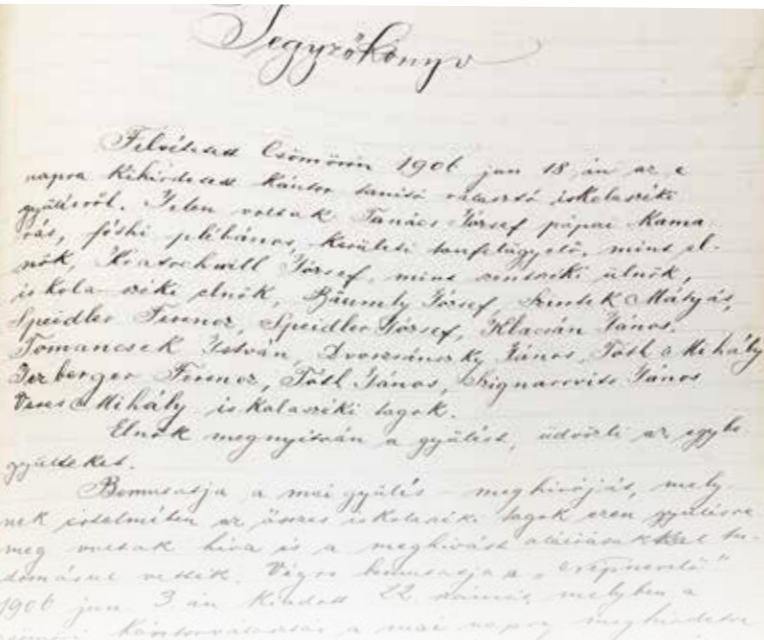 Jegyzőkönyv
Felvétetett Csömörön 1906 jun 18.án az e
napra kihirdetett kántor tanitó választó iskolaszéki
gyülésről. Jelen voltak Tanács József pápai kama-
rás, fóthi plébános, kerületi tanfelügyelő, mint el-
nök, Kratochwill József, mint szentszéki ülnök,
iskola széki elnök, Bäumly József, Szintek Mátyás,
Speidler Ferencz, Speidler József, Klacsán János,
Tomancsek István, Dvorzsánszky János, Tóth Mihály
Ferencz, Tóth János, János
Veres Mihály iskolaszéki tagok.
Elnök megnyitván a gyülést, üdvözli az egybe-
gyülteket.
Bemutatja a mai gyülés meghivóját, mely-
nek értelmében az összes iskolaszéki tagok ezen gyülésre
meg voltak hiva és a meghivást aláirásukkal tu-
domásul vették. Végre bemutatja a „Népnevelő"
1906 jun 3.án kiadott 22. számát, melyben a
kántorválasztás a mai napra meghirdetve